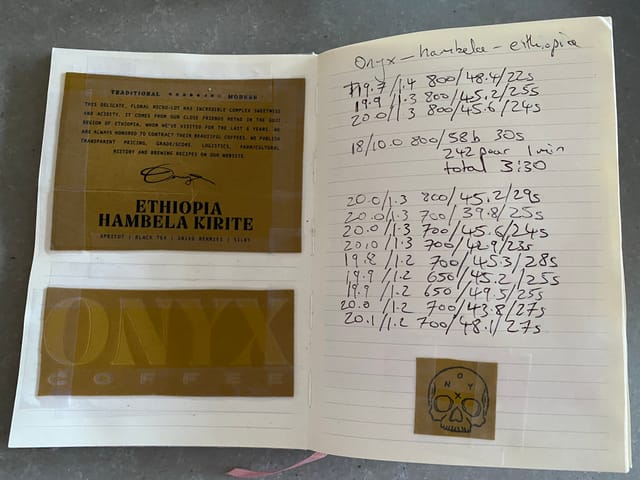 TRADITIONAL MODERN
THIS DELICATE, FLORAL MICRO-LOT HAS INCREDIBLE COMPLEX SWEETNESS
AND ACIDITY. IT COMES FROM OUR CLOSE FRIENDS METAD IN THE GUJI
REGION OF ETHIOPIA, WHOM WE'VE VISITED FOR THE LAST 6 YEARS. WE
ARE ALWAYS HONORED TO CONTRACT THEIR BEAUTIFUL COFFEES. WE PUBLISH
TRANSPARENT PRICING, GRADE/SCORE, LOGISTICS, FARM/CULTURAL
HISTORY AND BREWING RECIPES ON OUR WEBSITE.
ETHIOPIA
HAMBELA KIRITE
APRICOT | BLACK TEA | DRIED BERRIES | SILKY
ONYX
COFFEE
Onyx - hambela - ethiopia
19.7/1.4 800/48.4/22s
19.9/1.3 800/45.2/25s
20.0/1.3 800/45.6/24s
18/10.0 800/58h 30s
242 pour 1 min
total 3:30
20.0/1.3 800/45.2/29s
20.0/1.3 700/39.8/25s
20.0/1.3 700/45.6/24s
20.0/1.3 700/42.9/23s
19.8/1.2 700/45.3/28s
19.9/1.2 650/45.2/25s
19.9/1.2 650/49.5/25s
20.0/1.2 700/43.8/27s
20.1/1.2 700/48.1/27s
O
N Y
X